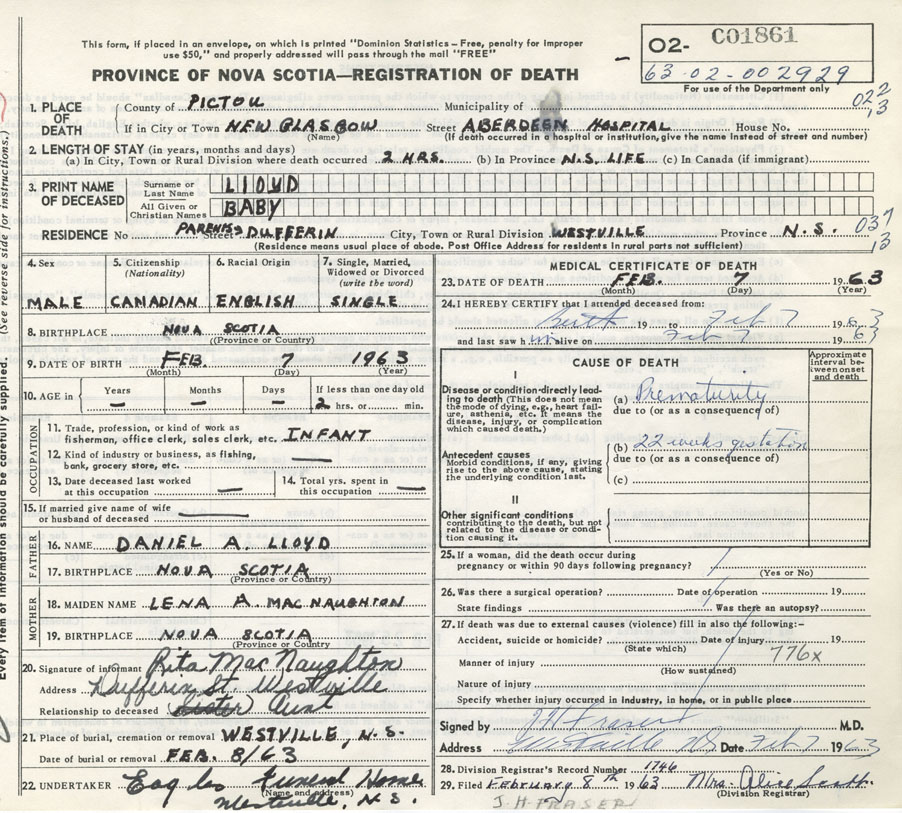 This form, if placed in an envelope, on which is printed "Dominion Statistics - Free, penalty for improper
use $50," and properly addressed will pass through the mail "FREE"
PROVINCE OF NOVA SCOTIA—REGISTRATION OF DEATH
02- C01861
63-02-002929
For use of the Department only
022
13
1. PLACE OF DEATH
County of PICTOU Municipality of
If in City or Town NEW GLASGOW Street ABERDEEN HOSPITAL House No.
(Name) (If death occurred in a hospital or institution, give the name instead of street and number)
2. LENGTH OF STAY (in years, months and days)
(a) In City, Town or Rural Division where death occurred 2 HRS. (b) In Province N.S. LIFE (c) In Canada (if immigrant)
3. PRINT NAME OF DECEASED
Surname or Last Name LLOYD
All Given or Christian Names BABY
RESIDENCE No PARENTS Street DUFFERIN City, Town or Rural Division WESTVILLE Province N.S.
037
13
(Residence means usual place of abode. Post Office Address for residents in rural parts not sufficient)
4. Sex MALE
5. Citizenship (Nationality) CANADIAN
6. Racial Origin ENGLISH
7. Single, Married, Widowed or Divorced (write the word) SINGLE
8. BIRTHPLACE NOVA SCOTIA
(Province or Country)
9. DATE OF BIRTH FEB. 7 1963
(Month) (Day) (Year)
10. AGE in Years — Months — Days — If less than one day old 2 hrs. or min.
OCCUPATION
11. Trade, profession, or kind of work as fisherman, office clerk, sales clerk, etc. INFANT
12. Kind of industry or business, as fishing, bank, grocery store, etc. —
13. Date deceased last worked at this occupation —
14. Total yrs. spent in this occupation —
15. If married give name of wife or husband of deceased —
FATHER
16. NAME DANIEL A. LLOYD
17. BIRTHPLACE NOVA SCOTIA
(Province or Country)
MOTHER
18. MAIDEN NAME LENA A. MACNAUGHTON
19. BIRTHPLACE NOVA SCOTIA
(Province or Country)
20. Signature of informant Rita MacNaughton
Address Dufferin St. Westville
Relationship to deceased Sister Aunt
21. Place of burial, cremation or removal WESTVILLE, N.S.
Date of burial or removal FEB. 8/63
22. UNDERTAKER Eagles Funeral Home
(Name and address)
Westville, N.S.
MEDICAL CERTIFICATE OF DEATH
23. DATE OF DEATH FEB. 7 1963
(Month) (Day) (Year)
24. I HEREBY CERTIFY that I attended deceased from:
Birth 19 to Feb 7 1963
and last saw him alive on Feb 7 1963
CAUSE OF DEATH
Approximate interval between onset and death
I
Disease or condition directly leading to death (This does not mean the mode of dying, e.g., heart failure, asthenia, etc. It means the disease, injury, or complication which caused death.)
(a) Prematurity
due to (or as a consequence of)
Antecedent causes
Morbid conditions, if any, giving rise to the above cause, stating the underlying condition last.
(b) 22 weeks gestation
due to (or as a consequence of)
(c)
II
Other significant conditions
contributing to the death, but not related to the disease or condition causing it.
25. If a woman, did the death occur during pregnancy or within 90 days following pregnancy?
(Yes or No)
26. Was there a surgical operation? Date of operation 19
State findings Was there an autopsy?
27. If death was due to external causes (violence) fill in also the following:-
Accident, suicide or homicide? Date of injury 19
(State which)
776x
Manner of injury
(How sustained)
Nature of injury
Specify whether injury occurred in industry, in home, or in public place
Signed by J H Fraser M.D.
Address Westville NS Date Feb 7 1963
28. Division Registrar's Record Number 1746
29. Filed February 8th 1963 Mrs. Alice
(Division Registrar)
J. H. FRASER
Every item of information should be carefully supplied. (See reverse side for instructions.)